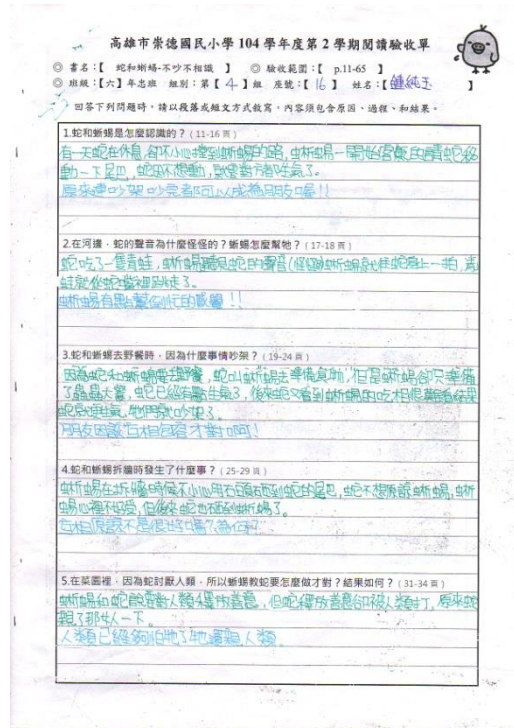 高雄市崇德國民小學 104 學年度第 2 學期閱讀驗收單
◎ 書名：【 蛇和蜥蜴-不吵不相識 】 ◎ 驗收範圍：【 p.11-65 】
◎ 班級：【六】年忠班 組別：第【4】組 座號：【16】 姓名：【鍾純玉】
回答下列問題時，請以段落或短文方式敘寫，內容須包含原因、過程、和結果。
1.蛇和蜥蜴是怎麼認識的？(11-16 頁)
有一天蛇在休息,卻不小心擋到蜥蜴的路,蜥蜴一開始客氣的請蛇移
動一下尾巴,蛇因不想動,就讓對方者生氣了。
原來連吵架吵完者都可以成為朋友喔!!
2.在河邊，蛇的聲音為什麼怪怪的？蜥蜴怎麼幫牠？(17-18 頁)
蛇吃了一隻青蛙,蜥蜴聽見蛇的聲音(怪怪)蜥蜴就往蛇身上一拍,青
蛙就從蛇嘴裡跳走了。
蜥蜴有點幫倒忙的感覺!!
3.蛇和蜥蜴去野餐時，因為什麼事情吵架？(19-24 頁)
因為蛇和蜥蜴要去野餐,蛇叫蜥蜴去準備食物,但是蜥蜴卻只準備
了蟲蟲大餐,蛇已經有點生氣了,後來蛇又看到蜥蜴的吃相很難看結果
蛇就更生氣,牠們就吵架了。
朋友因該互相包容才對啊!
4.蛇和蜥蜴拆牆時發生了什麼事？(25-29 頁)
蜥蜴在拆牆時候不小心用石頭砸到蛇的尾巴,蛇不想原諒蜥蜴,蜥
蜴心裡不好受,但後來蛇也砸到蜥蜴了。
互相原諒不是很好嗎?為何?
5.在菜園裡，因為蛇討厭人類，所以蜥蜴教蛇要怎麼做才對？結果如何？(31-34 頁)
蜥蜴和蛇說要對人類釋放善意,但蛇釋放善意卻被人類打,原來蛇
親了那女人一下。
人類已經夠怕牠了牠還親人類